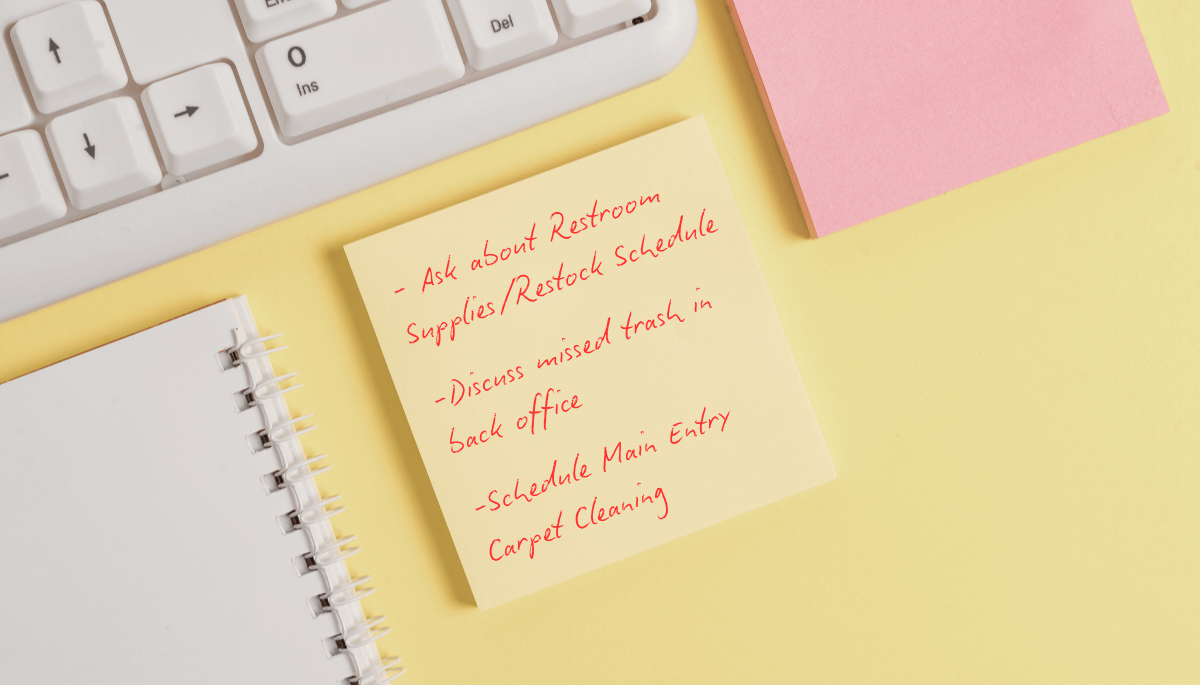 En
↑
0
Ins
Del
→
↓
- Ask about Restroom
Supplies/Restock Schedule
-Discuss missed trash in
back office
-Schedule Main Entry
Carpet Cleaning